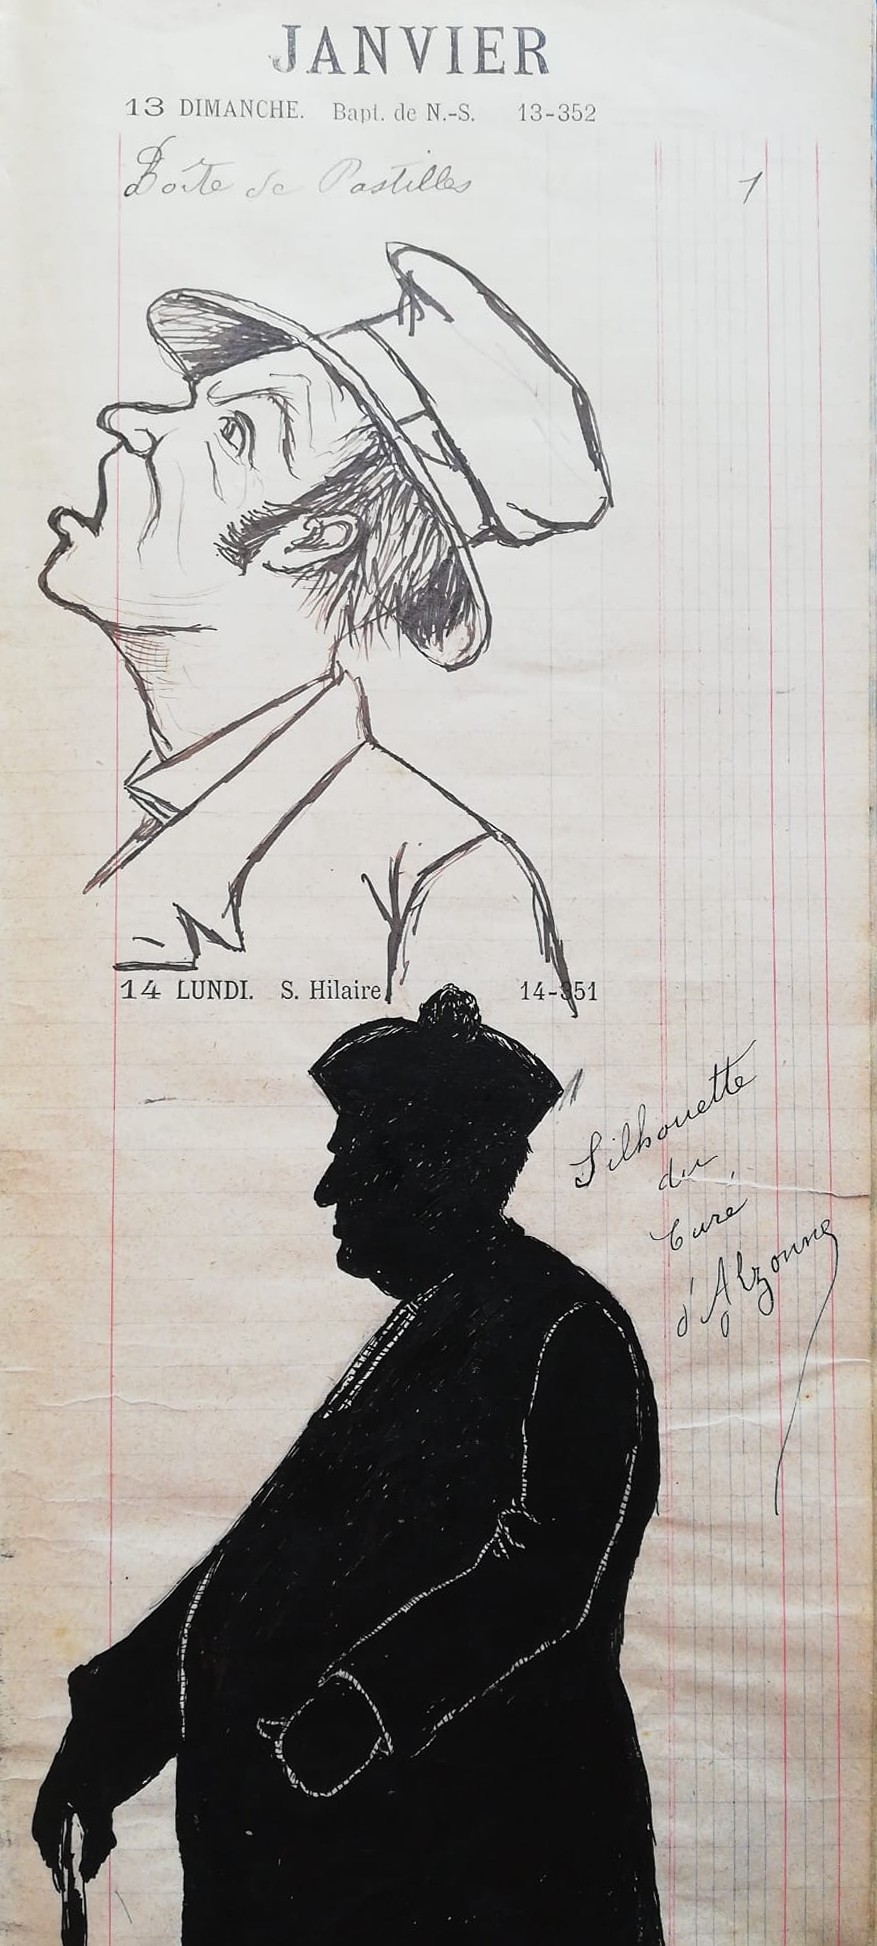 JANVIER
13 DIMANCHE. Bapt. de N.-S. 13-352
Boîte de Pastilles 1
14 LUNDI. S. Hilaire 14-351
Silhouette
du
Curé
d'Alzonne